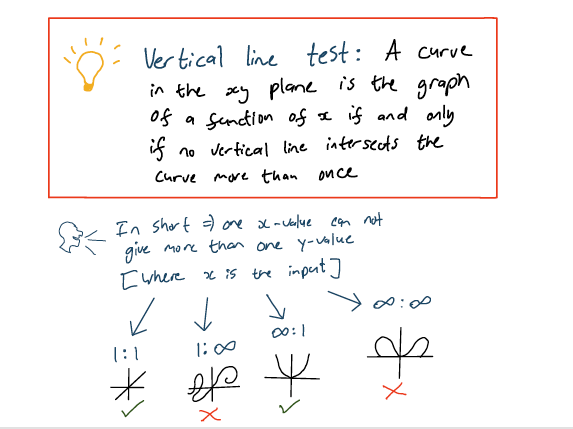 Vertical line test: A curve
in the xy plane is the graph
of a function of x if and only
if no vertical line intersects the
curve more than once
In short ⇒ one x-value can not
give more than one y-value
[where x is the input]
∞:∞
1:1
1:∞
∞:1